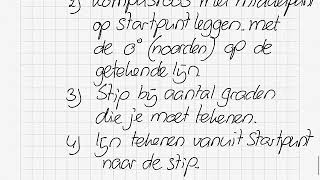 2) Kompasroos met middelpunt
op startpunt leggen. met
de 0° (noorden) op de
getekende lijn.
3) Stip bij aantal graden
die je moet tekenen.
4) lijn tekenen vanuit startpunt
naar de stip.